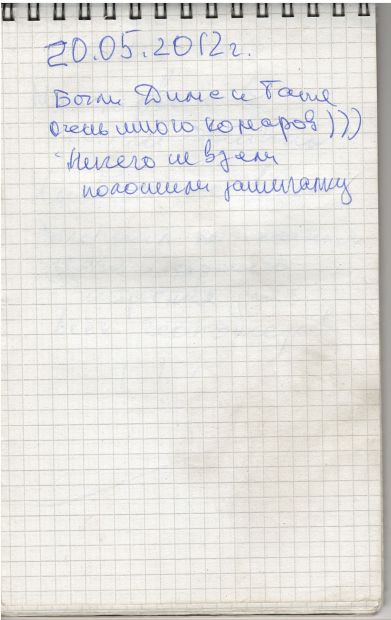 20.05.2012г.
Были Дима и Таня
очень много комаров)))
Ничего не взяли
положили зажигалку